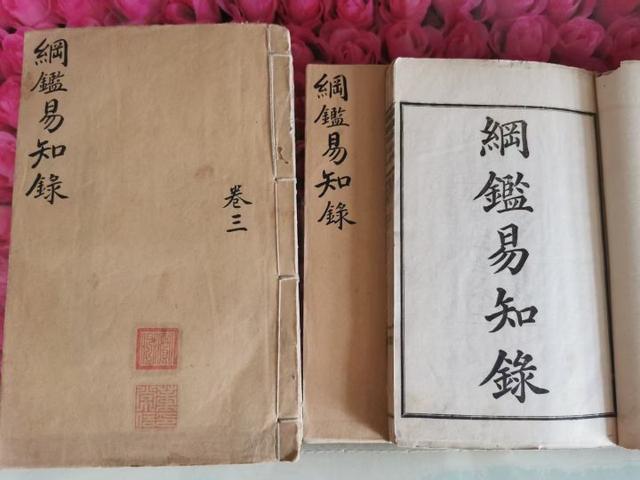 綱鑑易知錄
卷三
綱鑑易知錄
綱鑑易知錄